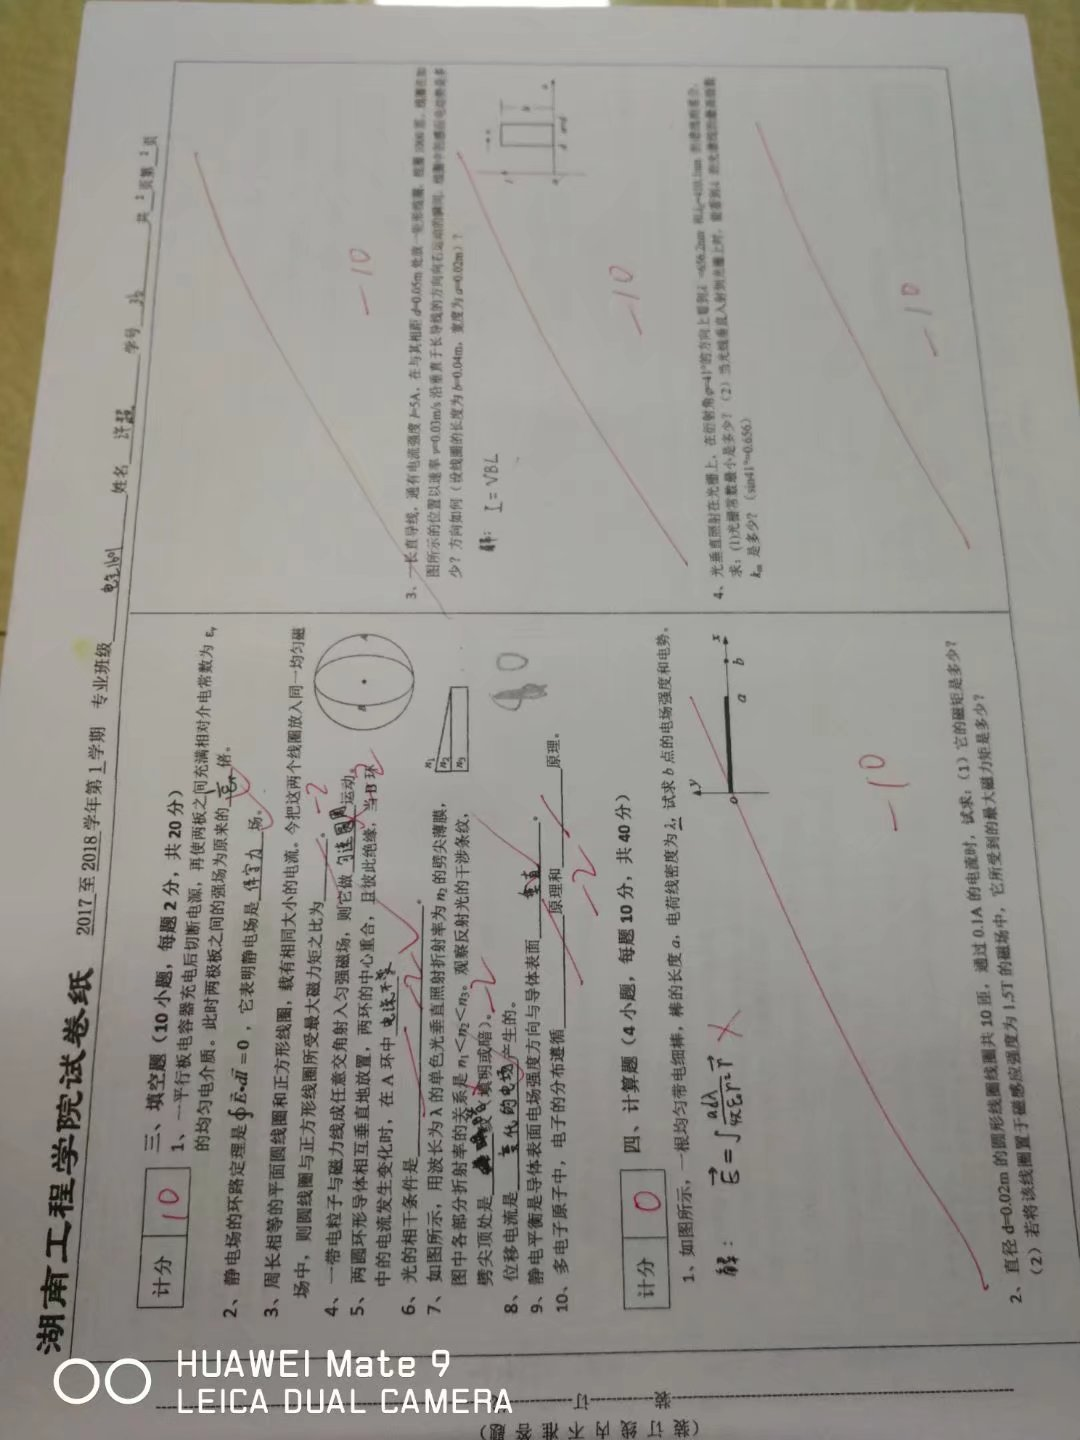 湖南工程学院试卷纸
2017至2018学年第1学期 专业班级 电气1601 姓名 许 学号 共2页第2页
计分 10
三、填空题(10小题,每题2分,共20分)
1、一平行板电容器充电后切断电源,再使两板之间充满相对介电常数为 εr
的均匀电介质。此时两极板之间的强场为原来的 倍。
2、静电场的环路定理是∮E·dl=0,它表明静电场是 保守力 场。
3、周长相等的平面圆线圈和正方形线圈,载有相同大小的电流。今把这两个线圈放入同一均匀磁
场中,则圆线圈与正方形线圈所受最大磁力矩之比为 。 -2
4、一带电粒子与磁力线成任意交角射入匀强磁场,则它做 匀速圆周 运动。
5、两圆环形导体相互垂直地放置,两环的中心重合,且彼此绝缘,当B环
中的电流发生变化时,在A环中 电流不变 -2
6、光的相干条件是 。 -2
7、如图所示,用波长为λ的单色光垂直照射折射率为n2的劈尖薄膜,
图中各部分折射率的关系是n1<n2<n3。观察反射光的干涉条纹,
劈尖顶处是 纹(填明或暗)。 -2
8、位移电流是 变化的电场 产生的。
9、静电平衡是导体表面电场强度方向与导体表面 垂直 。
10、多电子原子中,电子的分布遵循 原理和 原理。 -2
B A
n1
n2
n3
计分 0
四、计算题(4小题,每题10分,共40分)
1、如图所示,一根均匀带电细棒,棒的长度a,电荷线密度为λ,试求b点的电场强度和电势。
解: E=∫
y o a b x
-10
2、直径d=0.02m的圆形线圈线圈共10匝,通过0.1A的电流时,试求:(1)它的磁矩是多少?
(2)若将该线圈置于磁感应强度为1.5T的磁场中,它所受到的最大磁力矩是多少?
-10
3、一长直导线,通有电流强度I=5A,在与其相距d=0.05m处放一矩形线圈,线圈1000匝,线圈在如
图所示的位置以速率v=0.03m/s沿垂直于长导线的方向向右运动的瞬间,线圈中的感应电动势是多
少?方向如何(设线圈的长度为b=0.04m,宽度为a=0.02m)?
解: I=VBL
-10
4、光垂直照射在光栅上,在衍射角φ=41°的方向上看到λ1=656.2nm和λ2=410.1nm的谱线
求:(1)光栅常数最小是多少?(2)当光线垂直入射到光栅上时,
km是多少?(sin41°=0.656)
-10
装
订
HUAWEI Mate 9
LEICA DUAL CAMERA